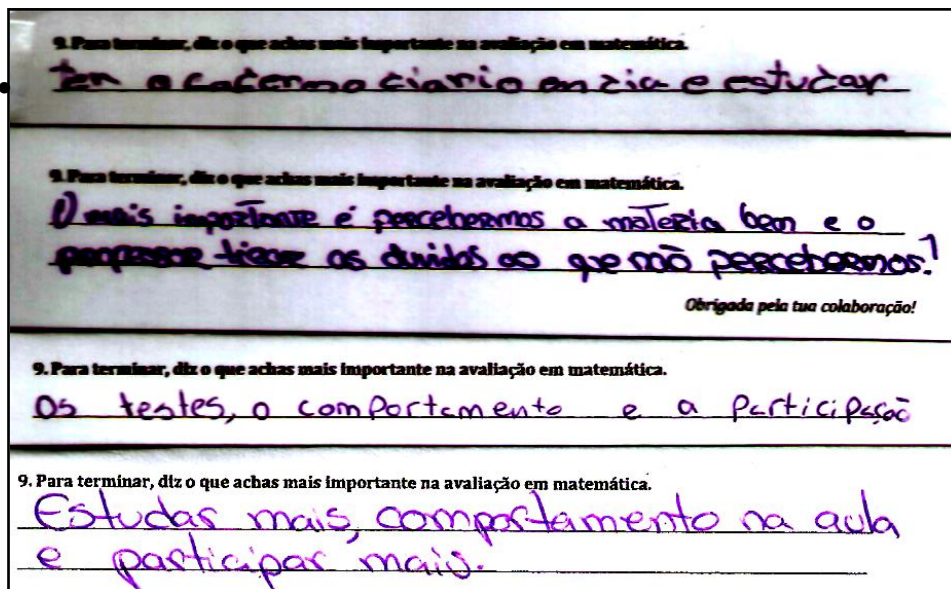 9. Para terminar, diz o que achas mais importante na avaliação em matemática.
Ter o caderno diario em dia e estudar
9. Para terminar, diz o que achas mais importante na avaliação em matemática.
O mais importante é percebermos a materia bem e o
professor tirar as duvidas ao que não percebermos!
Obrigada pela tua colaboração!
9. Para terminar, diz o que achas mais importante na avaliação em matemática.
Os testes, o comportamento e a participação
9. Para terminar, diz o que achas mais importante na avaliação em matemática.
Estudar mais, comportamento na aula
e participar mais.